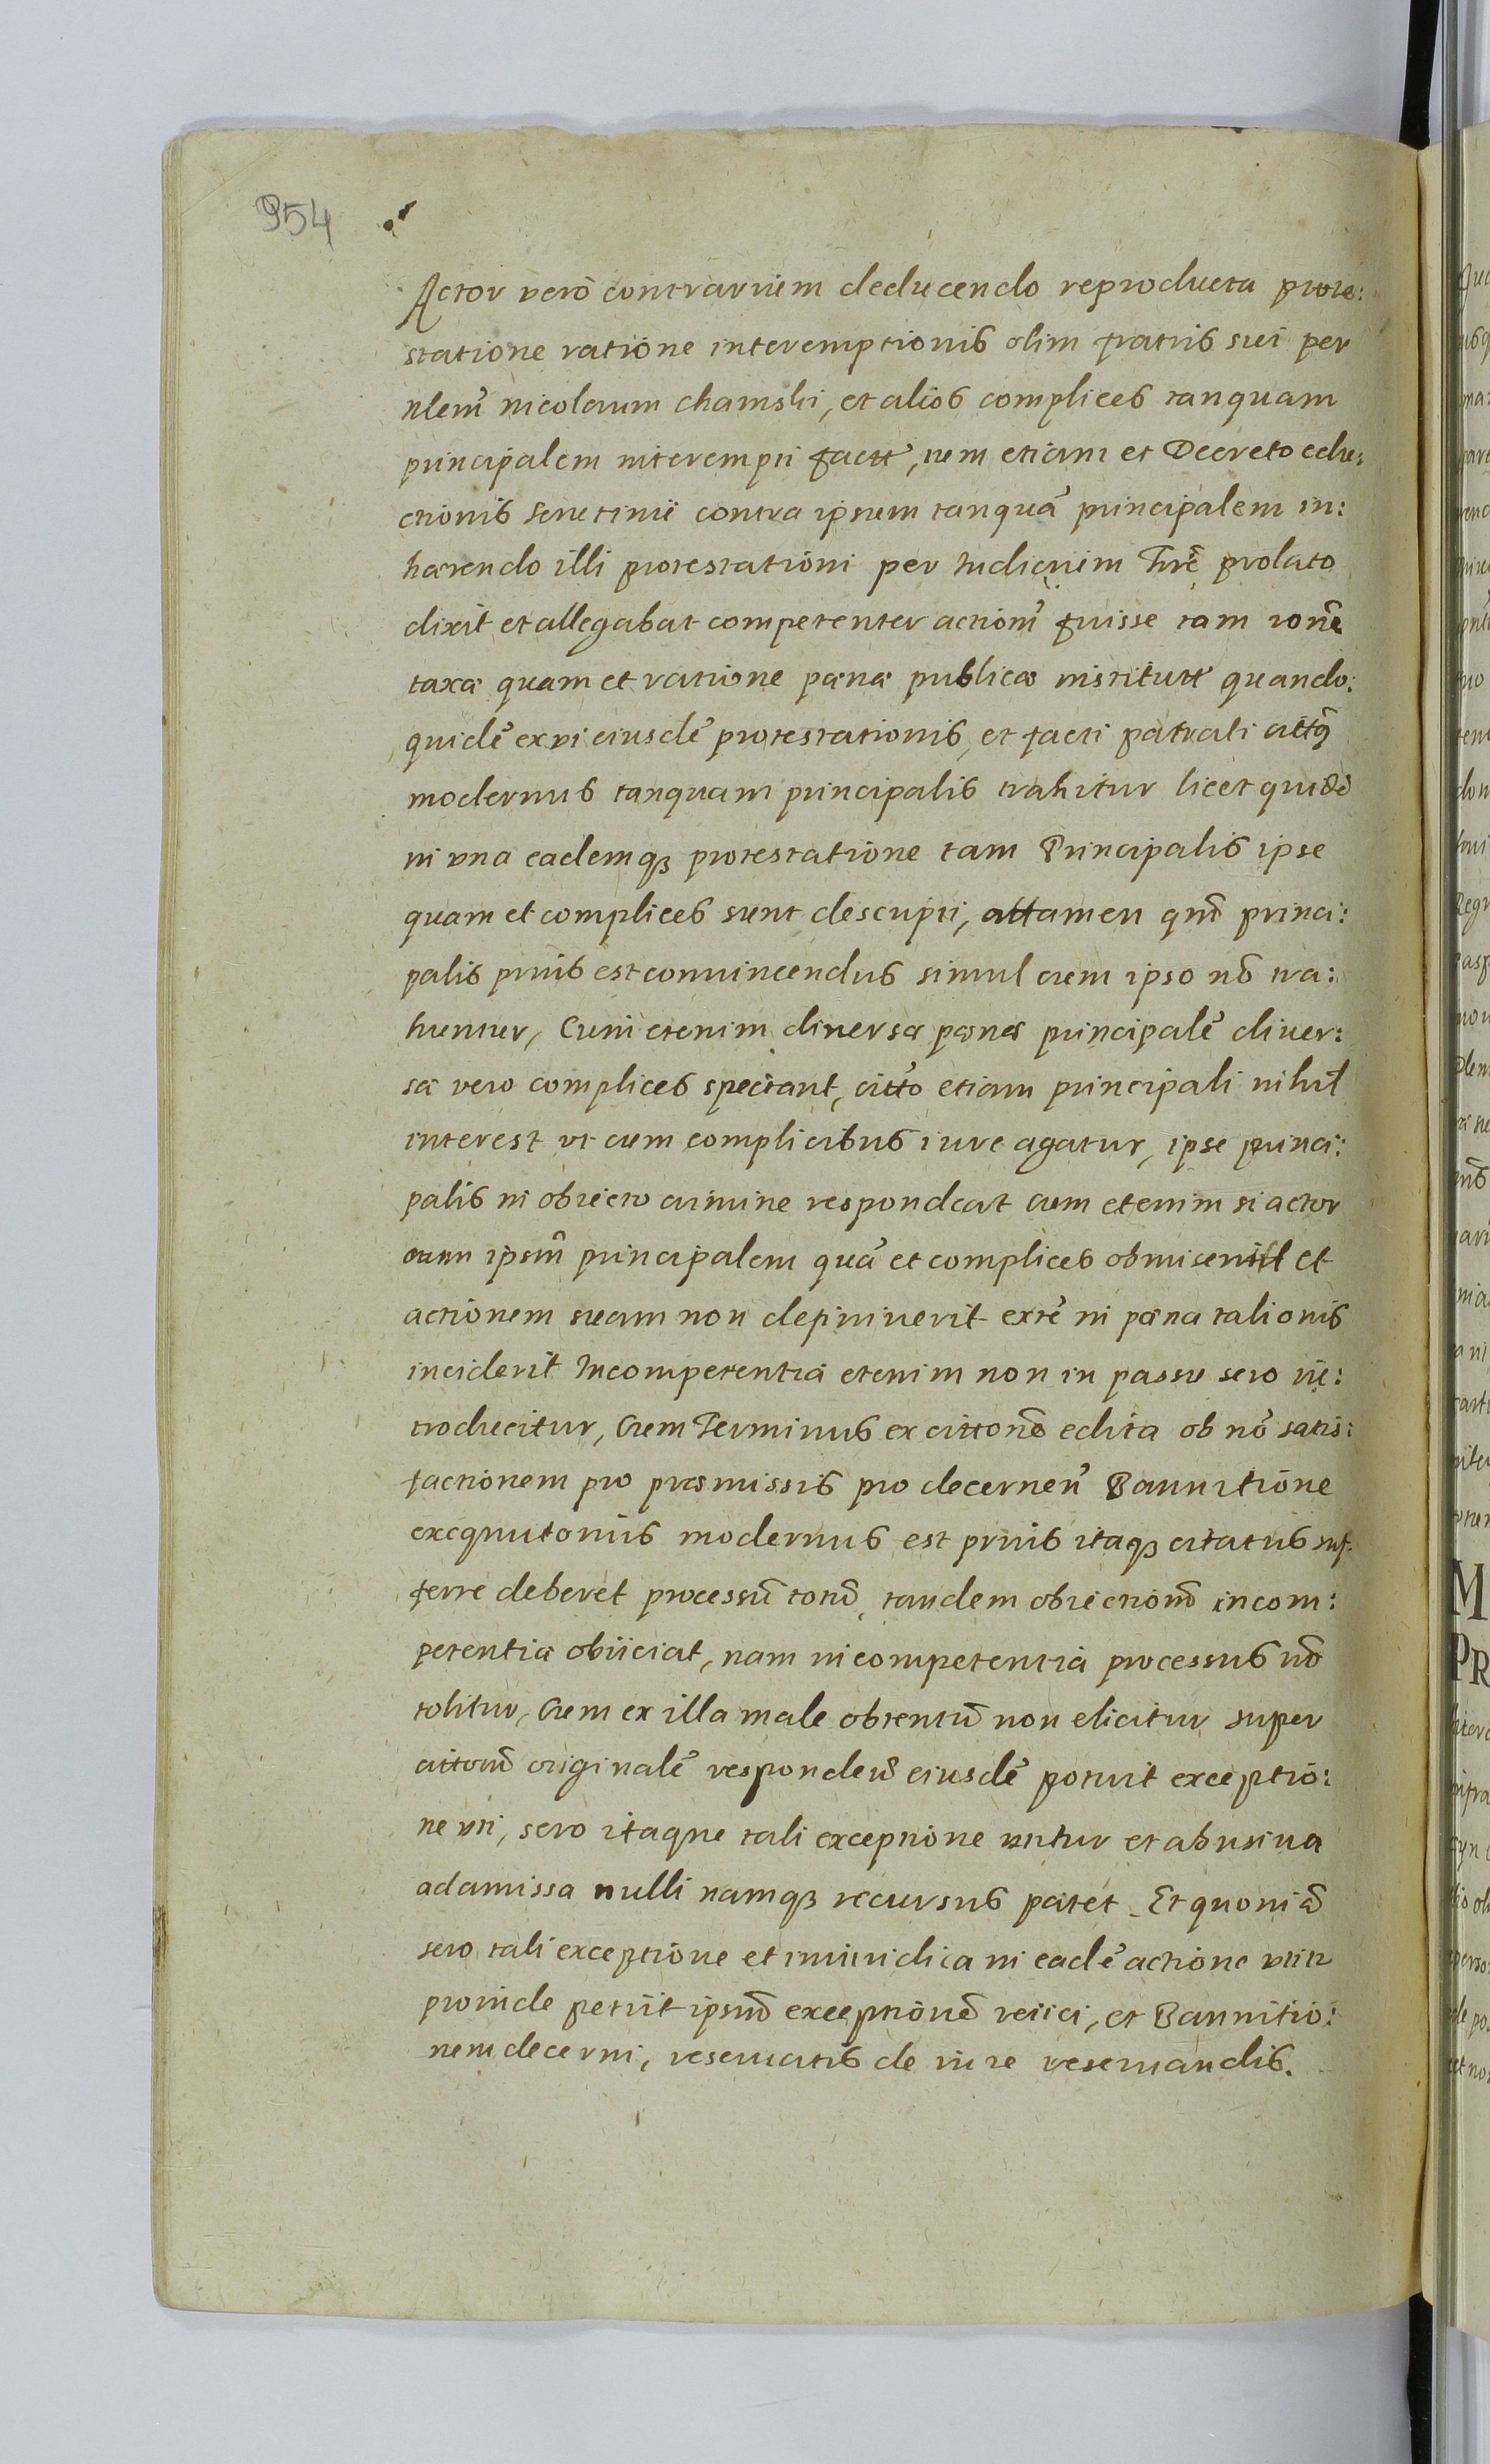 954
Actor vero contrarium deducendo reproducta prote:
statione ratione interemptionis olim fratris sui per
nlem̃ nicolaum chamski, et alios complices tanquam
principalem interempti fact, tum etiam et Decreto edu:
ctionis scrutinii contra ipsum tanquã principalem in:
hærendo illi protestationi per Iudicium Tñre prolato
dixit et allegabat competenter actionẽ fuisse tam rone
taxæ quam et ratione pænæ publicæ institut quando:
quidẽ ex vi eiusdẽ protestationis, et facti patrati cittq̃
modernus tanquam principalis trahitur licet quidẽ
in vna eademqȝ protestatione tam Principalis ipse
quam et complices sunt descripti, attamen qm̃ princi:
palis prius est conuincendus simul cum ipso nõ tra:
huntur, Cum etenim diuersæ pænæ principalẽ diuer:
sæ vero complices spectant, citto etiam principali nihil
interest vt cum complicibus iure agatur, ipse princi:
palis in obiecto crimine respondeat cum etenim si actor
tam ipsm̃ principalem quã et complices obmiserit et
actionem suam non definiuerit extẽ in pæna talionis
inciderit Incompetentia etenim non in passu sero in:
troducitur, Cum Terminus ex cittonẽ edita ob nõ satis:
factionem pro præmissis pro decernen̄ Bannitione
exequutorius modernus est prius itaqȝ citatus suf:
ferre deberet processũ totũ, tandem obiectionẽ incom:
petentiæ obiiciat, nam incompetentia processus nõ
tolitur, Cum ex illa male obtentũ non elicitur super
cittonẽ originalẽ respondens eiusdẽ potuit exceptio:
ne vti, sero itaque tali exceptione vtitur et abusiua
adamissa nulli namqȝ recursus patet. Et quoniã
sero tali exceptione et iniuridica in eadẽ actione vtitr
proinde petiit ipsm̃ exceptionẽ reiici, et Bannitio:
nem decerni, reseruatis de iure reseruandis.